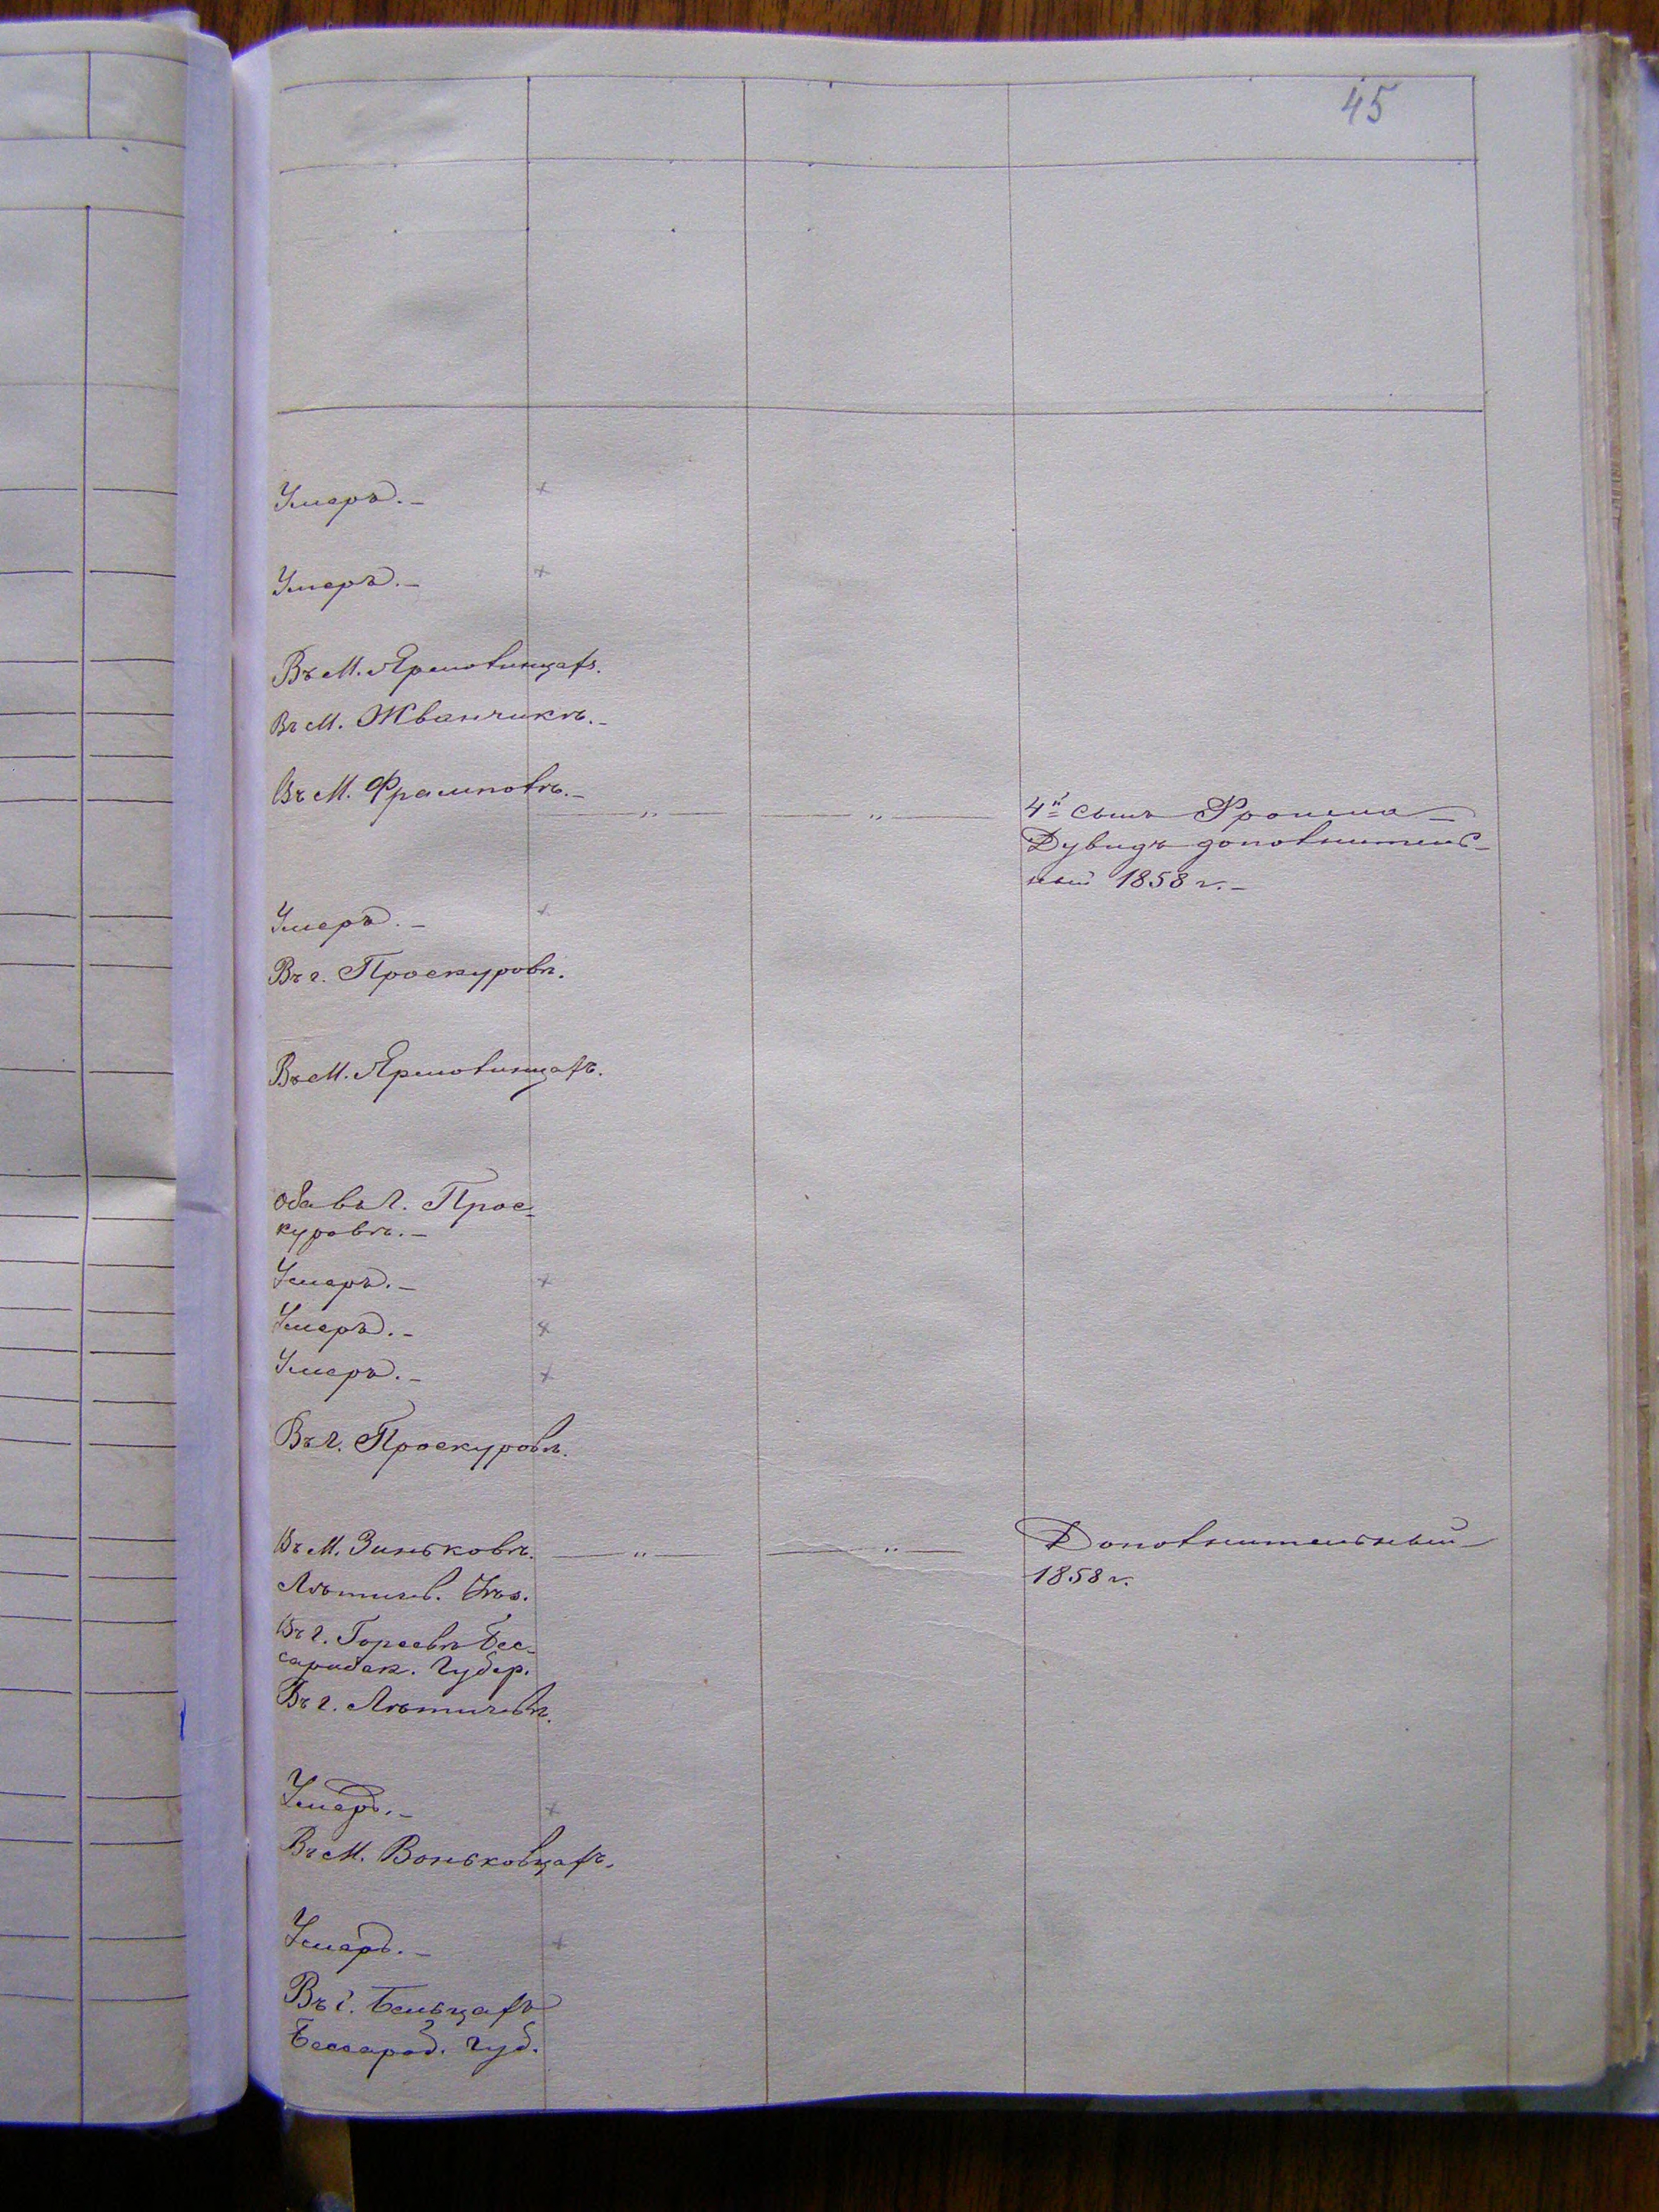 45
Умеръ. –
Умеръ. –
Въ М. Ярмолинцахъ.
Въ М. Жванчикѣ. –
Въ М. Фрамполѣ. –
4й сынъ Фроима
Дувидъ дополнитель-
ный 1858 г. –
Умеръ. –
Въ г. Проскуровѣ.
Въ М. Ярмолинцахъ.
Оба въ г. Прос-
куровѣ. –
Умеръ. –
Умеръ. –
Умеръ. –
Въ г. Проскуровѣ.
Въ М. Зиньковѣ.
Дополнительный
1858 г.
Лѣтичев. Уѣз.
Въ г. Оргеевѣ Бес-
сарабск. Губер.
Въ г. Лѣтичевѣ.
Умеръ. –
Въ М. Воньковцахъ.
Умеръ. –
Въ г. Бельцахъ
Бессараб. Губ.